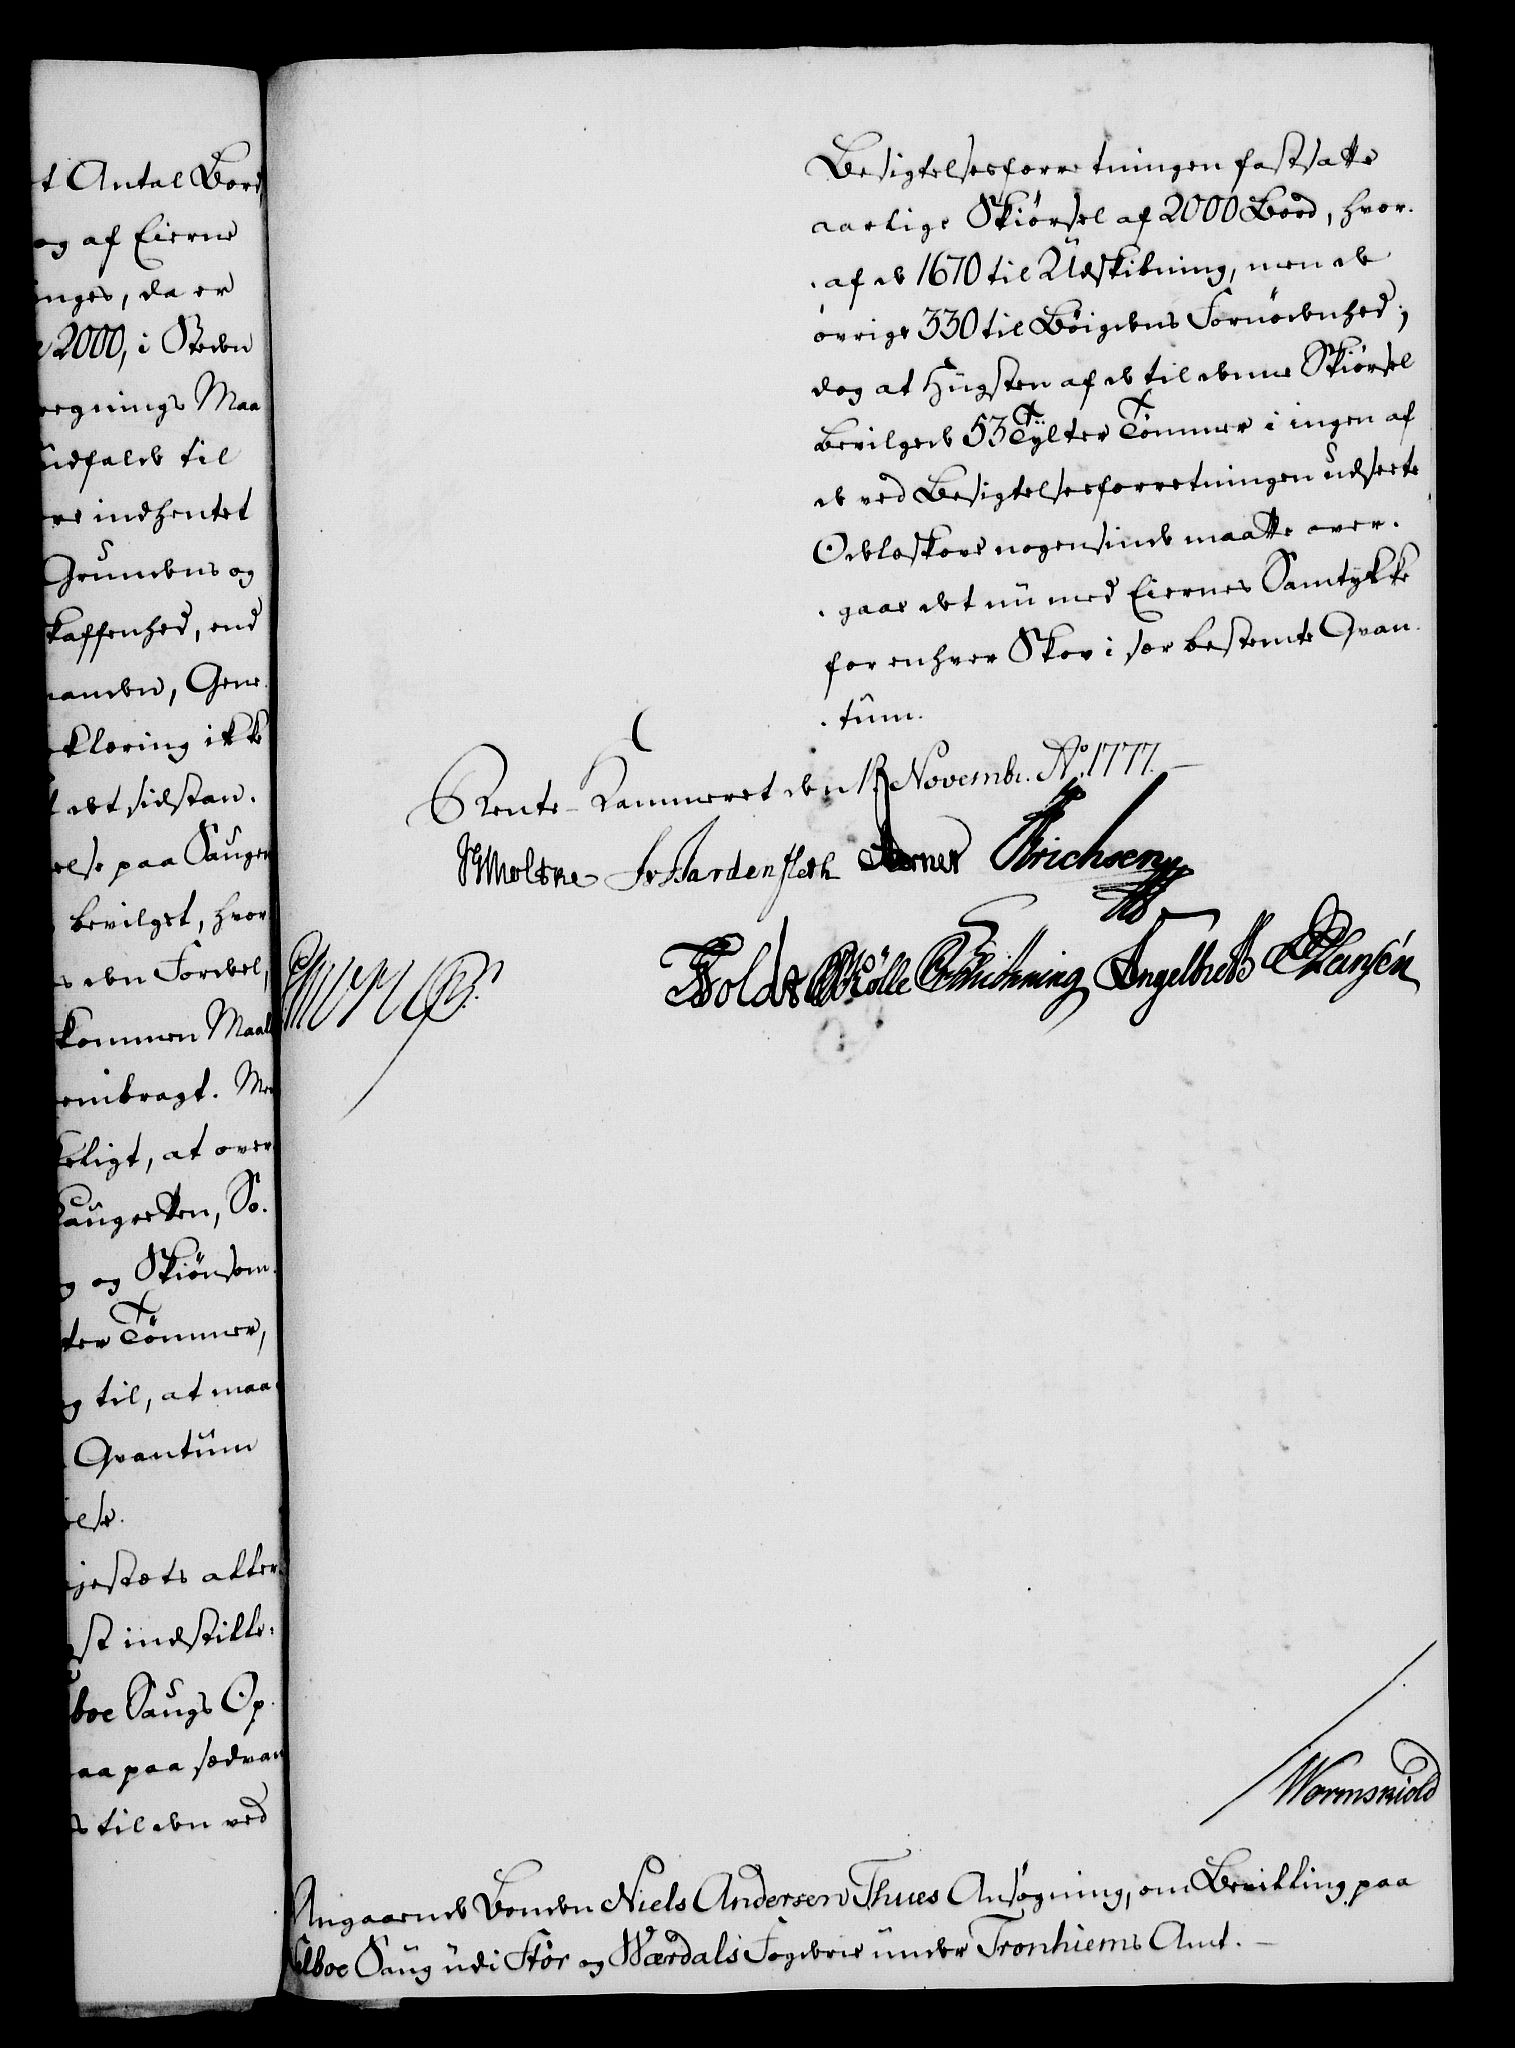 t Antal Bord
og af Eierne
inges, da er
2000, i Steden
regnings Maa
udfalde til
re indhentet
Grundens og
skaffenhed, end
anden, Gene-
klæring ikke
det sidstan-
else paa Sauger
bevilget, hvor
den Fordeel,
kommen Maal
enibragt. Men
keligt, at over
Saugretten, So-
g og Skiønsom-
ter Tømmer,
g til, at maa
Qvantum
else.
jestæts aller-
st indstille-
boe Saugs Op-
aa paa sædvan
s til den ved
Besigtelsesforretningen fastsatte
aarlige Skiørsel af 2000 Bord, hvor-
-af de 1670 til Udskibning, men de
øvrige 330 til Bøigdens Fornødenhed;
dog at Hugsten af de til denne Skiørsel
bevilgede 53 Tylter Tømmer i ingen af
de ved Besigtelsesforretningen udseete
Odelsskove nogensinde maatte over-
-gaae det nu med Eiernes Samtykke
for enhver Skov i sær bestemte Qvan-
-tum.
Rente-Kammeret den Novembr. Ao. 1777.
Moltke Fr. Hardenfleth Erichsen
Holde Rølle Schiønning Engelbreth Hansen
Wormskiold
Angaaende Bonden Niels Andersen Thues Ansøgning, om Bevilling paa
Elboe Saug udi Stør og Wærdals Fogderie under Tronhiems Amt.